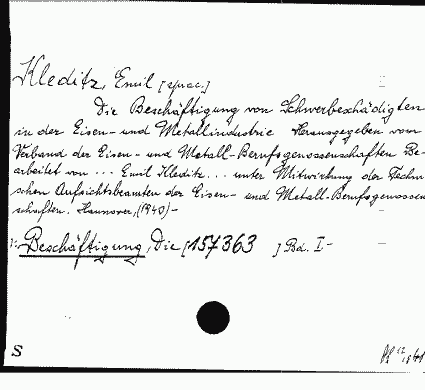 Kleditz, Emil [
Die Beschäftigung von Schwerbeschädigten
in der Eisen- und Metallindustrie Herausgegeben vom
Verband der Eisen- und Metall-Berufsgenossenschaften Be-
arbeitet von ... Emil Kleditz ... unter Mitwirkung der Techni-
schen Aufsichtsbeamten der Eisen- und Metall-Berufsgenossen-
schaften. Hannover, (1940)-
Beschäftigung, Die [157363 ] Bd. I-
S